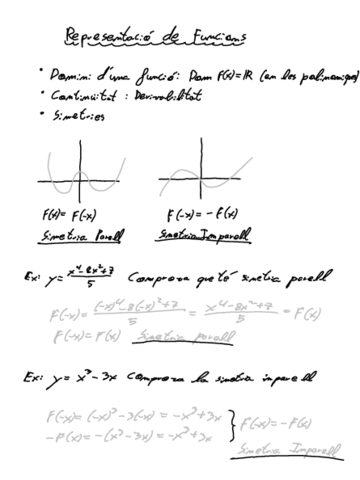 Representació de Funcions
• Domini d'una funció: Dom F(x)=ℝ (en les polinòmiques)
• Continuïtat : Derivabilitat
• Simetries
F(x)= F(-x)
F(-x)= -F(x)
Simetria Parell
Simetria Imparell
Ex: y= (x⁴-8x²+7)/5 Comprova que té simetria parell
F(-x)= ((-x)⁴-8(-x)²+7)/5 = (x⁴-8x²+7)/5 = F(x)
F(-x)=F(x) Simetria parell
Ex: y= x³-3x comprova la simetria imparell
F(-x)= (-x)³-3(-x) = -x³+3x
-F(x)= -(x³-3x) = -x³+3x
F(-x)= -F(x)
Simetria Imparell